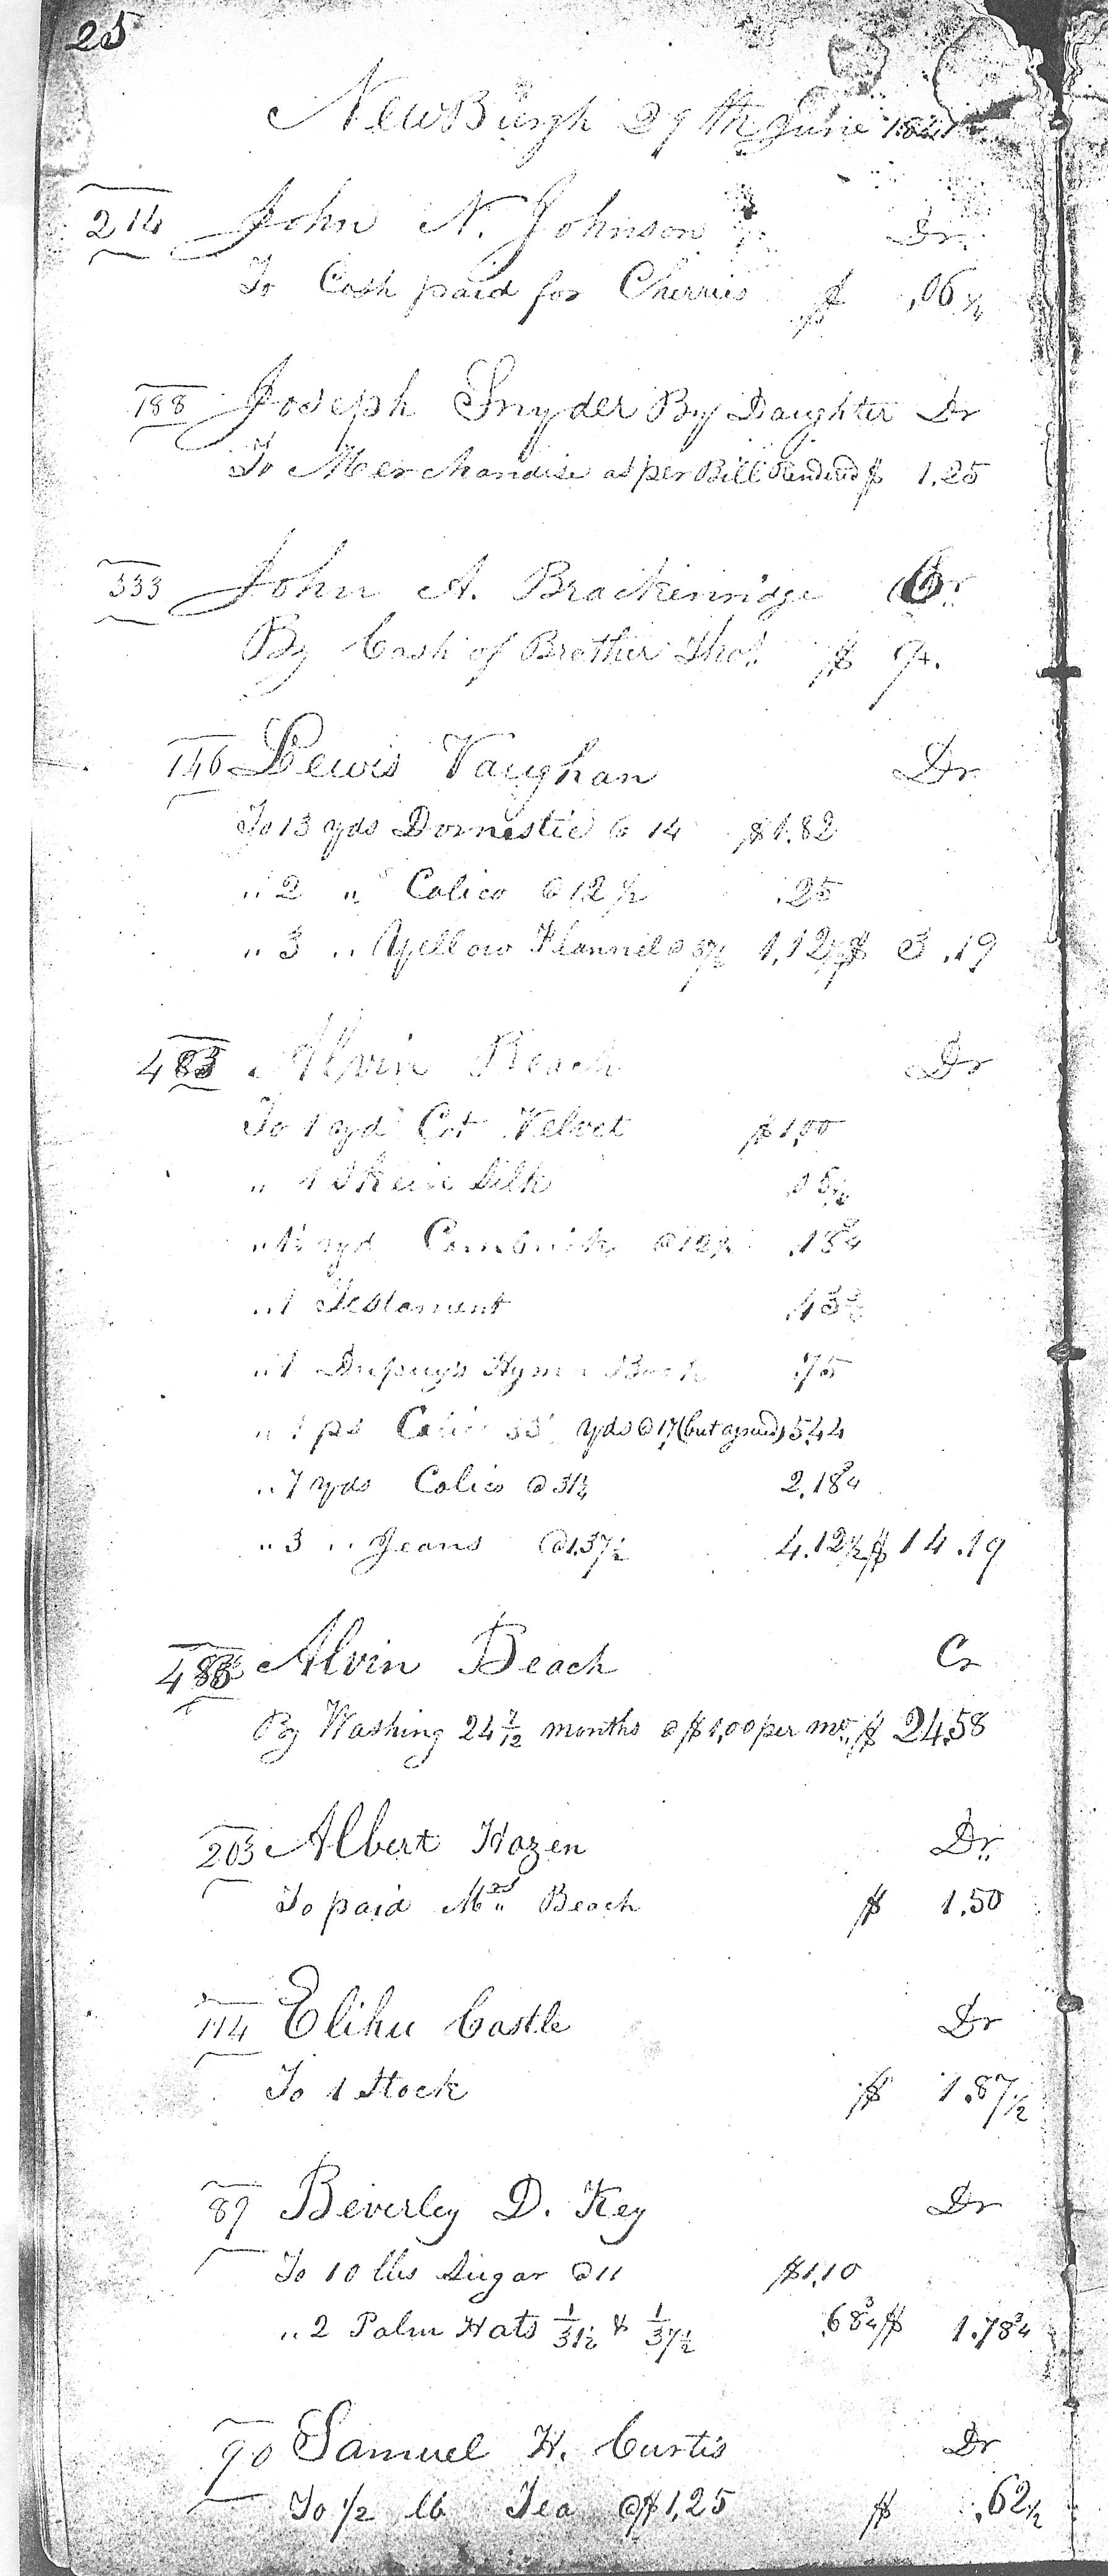 25
NewBurgh 29th June
214 John N. Johnson Dr.
To Cash paid for Cherries $ ,06 1/4
188 Joseph Snyder By Daughter Dr
To Merchandise as per Bill Rendered $ 1.25
333 John A. Brackenridge Cr.
By Cash of Brother Thos. $ 9.
146 Lewis Vaughan Dr
To 13 yds Domestic @ 14 $1.82
" 2 " Calico @ 12 1/2 .25
" 3 " Yellow Flannel @ 37 1/2 1,12 1/2 $ 3.19
483 Alvin Beach Dr
To 1 yd Cot Velvet $1,00
" 1 Skein Silk
" 1 1/2 yd Cambrick @ 12 1/2 .18 3/4
" 1 Testament
" 1 Dupuy's Hymn Book .75
" 1 ps Calico yds @ 17 (but agreed) 5.44
" 7 yds Calico @ 31 1/4 2.18 3/4
" 3 " Jeans @ 1.37 1/2 4.12 1/2 $ 14.19
483 Alvin Beach Cr
By Washing 24 7/12 months @ $1,00 per mo. $ 24.58
203 Albert Hazen Dr.
To paid Mrs Beach $ 1.50
114 Elihu Castle Dr
To 1 Stock $ 1.87 1/2
89 Beverley D. Key Dr
To 10 lbs Sugar @ 11 $1.10
" 2 Palm Hats 1/31 1/4 & 1/37 1/2 .68 3/4 $ 1.78 3/4
90 Samuel H. Curtis Dr
To 1/2 lb Tea @ $1,25 $ .62 1/2